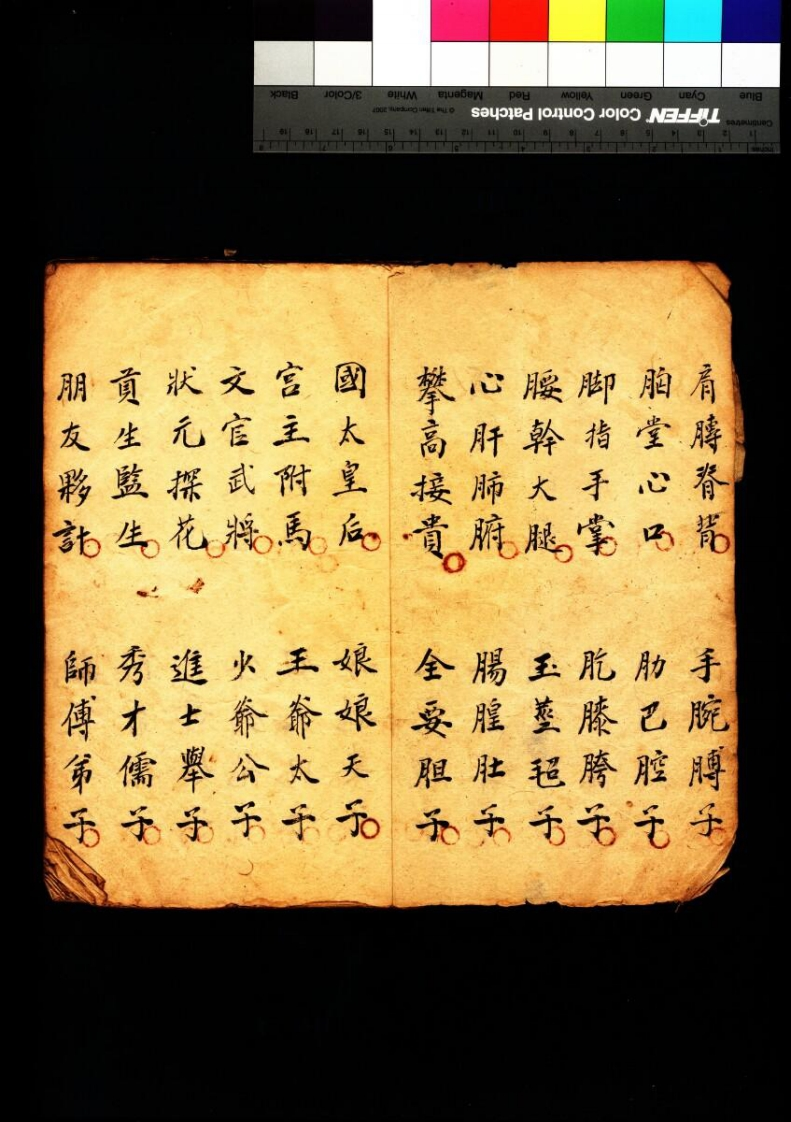 肩膞脊背
手腕膊子
胸堂心口
肋巴腔子
脚指手掌
肐膝胯子
腰幹大腿
玉莖子
心肝肺腑
腸腟肚子
攀高接貴
全要胆子
國太皇后
娘娘天子
宫主附馬
王爺太子
文官武將
火爺公子
狀元探花
進士舉子
貢生監生
秀才儒子
朋友夥計
師傅弟子
TIFFEN Color Control Patches
© The Tiffen Company, 2007
Blue Cyan Green Yellow Red Magenta White 3/Color Black
Centimetres
Inches